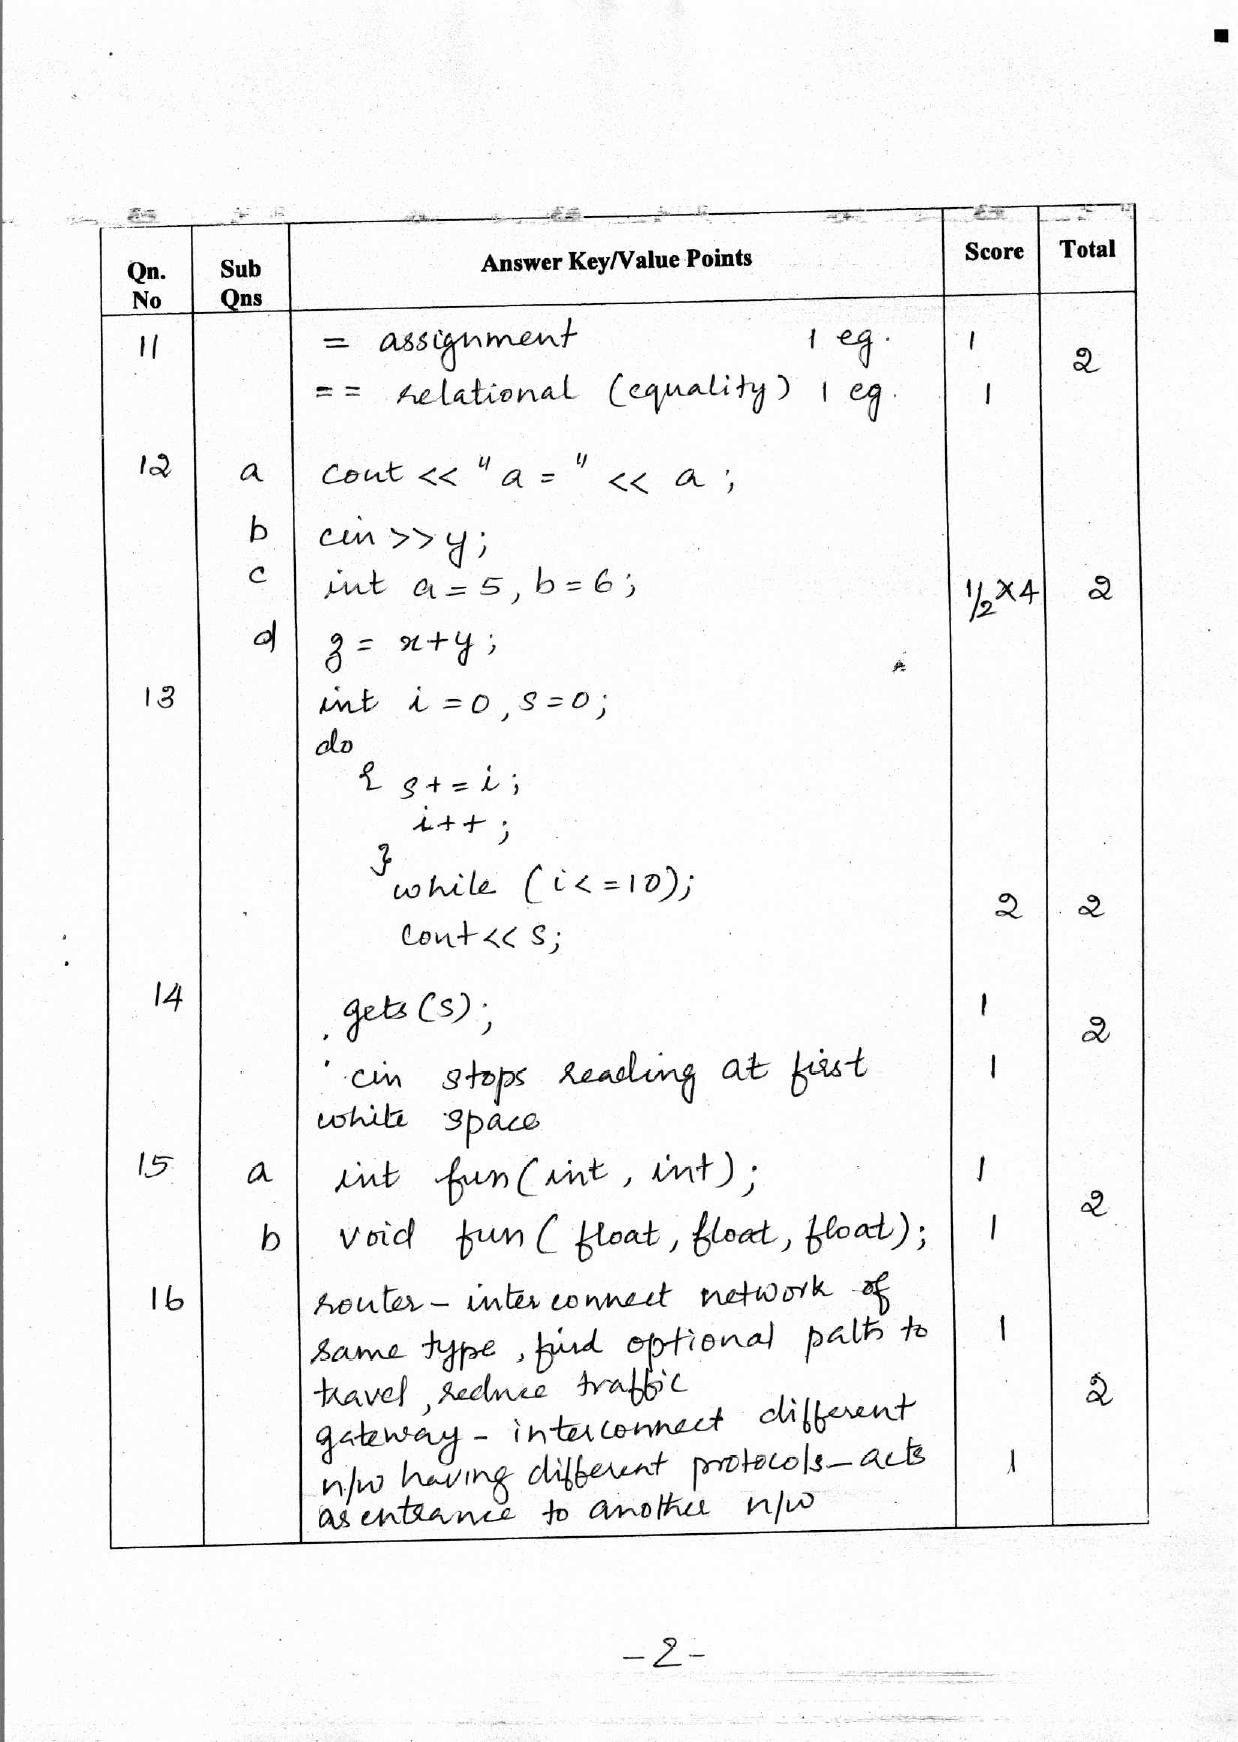 Qn. No Sub Qns Answer Key/Value Points Score Total
11 = assignment 1 eg. 1
2
== relational (equality) 1 eg. 1
12 a cout << "a = " << a ;
b cin >> y;
c int a = 5, b = 6; 1/2 × 4 2
d z = x+y;
13 int i = 0, s = 0;
do
{ s + = i;
i++;
}
while (i < = 10);
2 2
cout << s;
14 gets (s); 1
2
cin stops reading at first 1
white space
15 a int fun (int, int); 1
2
b void fun ( float, float, float); 1
16 router – interconnect network of
same type, find optional path to 1
travel, reduce traffic
2
gateway – interconnect different
n/w having different protocols – acts 1
as entrance to another n/w
– 2 –